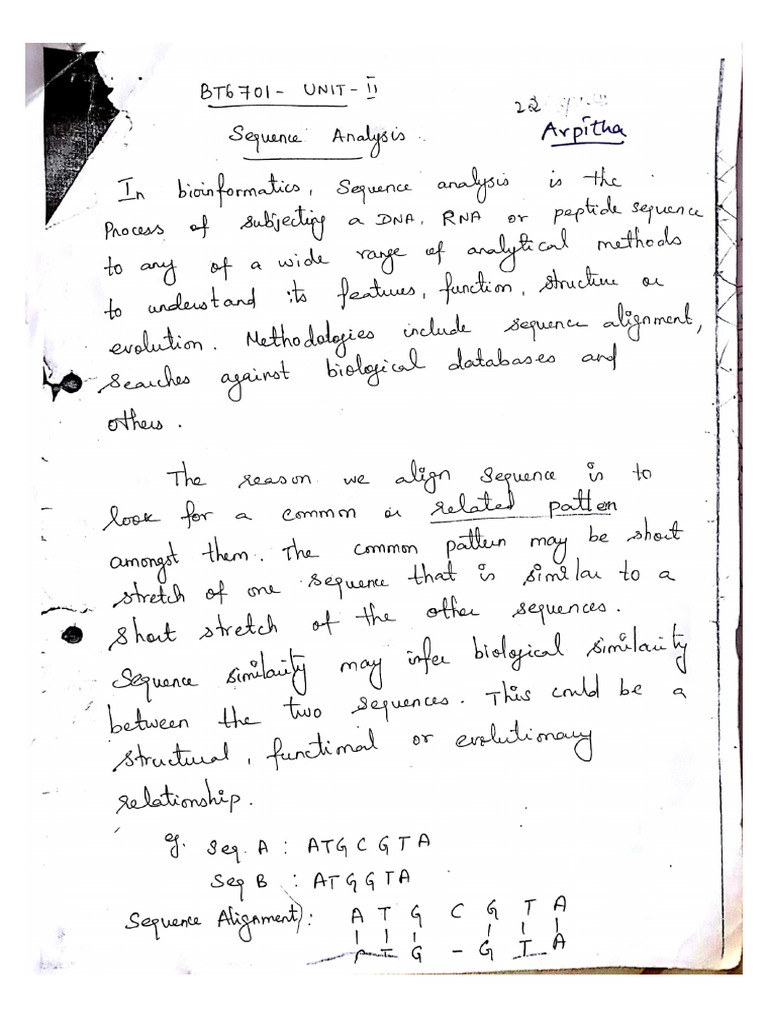 BT6701- UNIT-II
22
Sequence Analysis.
Arpitha
In bioinformatics, Sequence analysis is the
Process of subjecting a DNA, RNA or peptide sequence
to any of a wide range of analytical methods
to understand its features, function, structure or
evolution. Methodologies include sequence alignment,
searches against biological databases and
others.
The reason we align sequence is to
look for a common or related pattern
amongst them. The common pattern may be short
stretch of one sequence that is similar to a
short stretch of the other sequences.
Sequence similarity may infer biological similarity
between the two sequences. This could be a
structural, functional or evolutionary
relationship.
eg. Seq. A : ATGCGTA
Seq B : ATGGTA
Sequence Alignment): A T G C G T A
| | | | | |
A T G - G T A